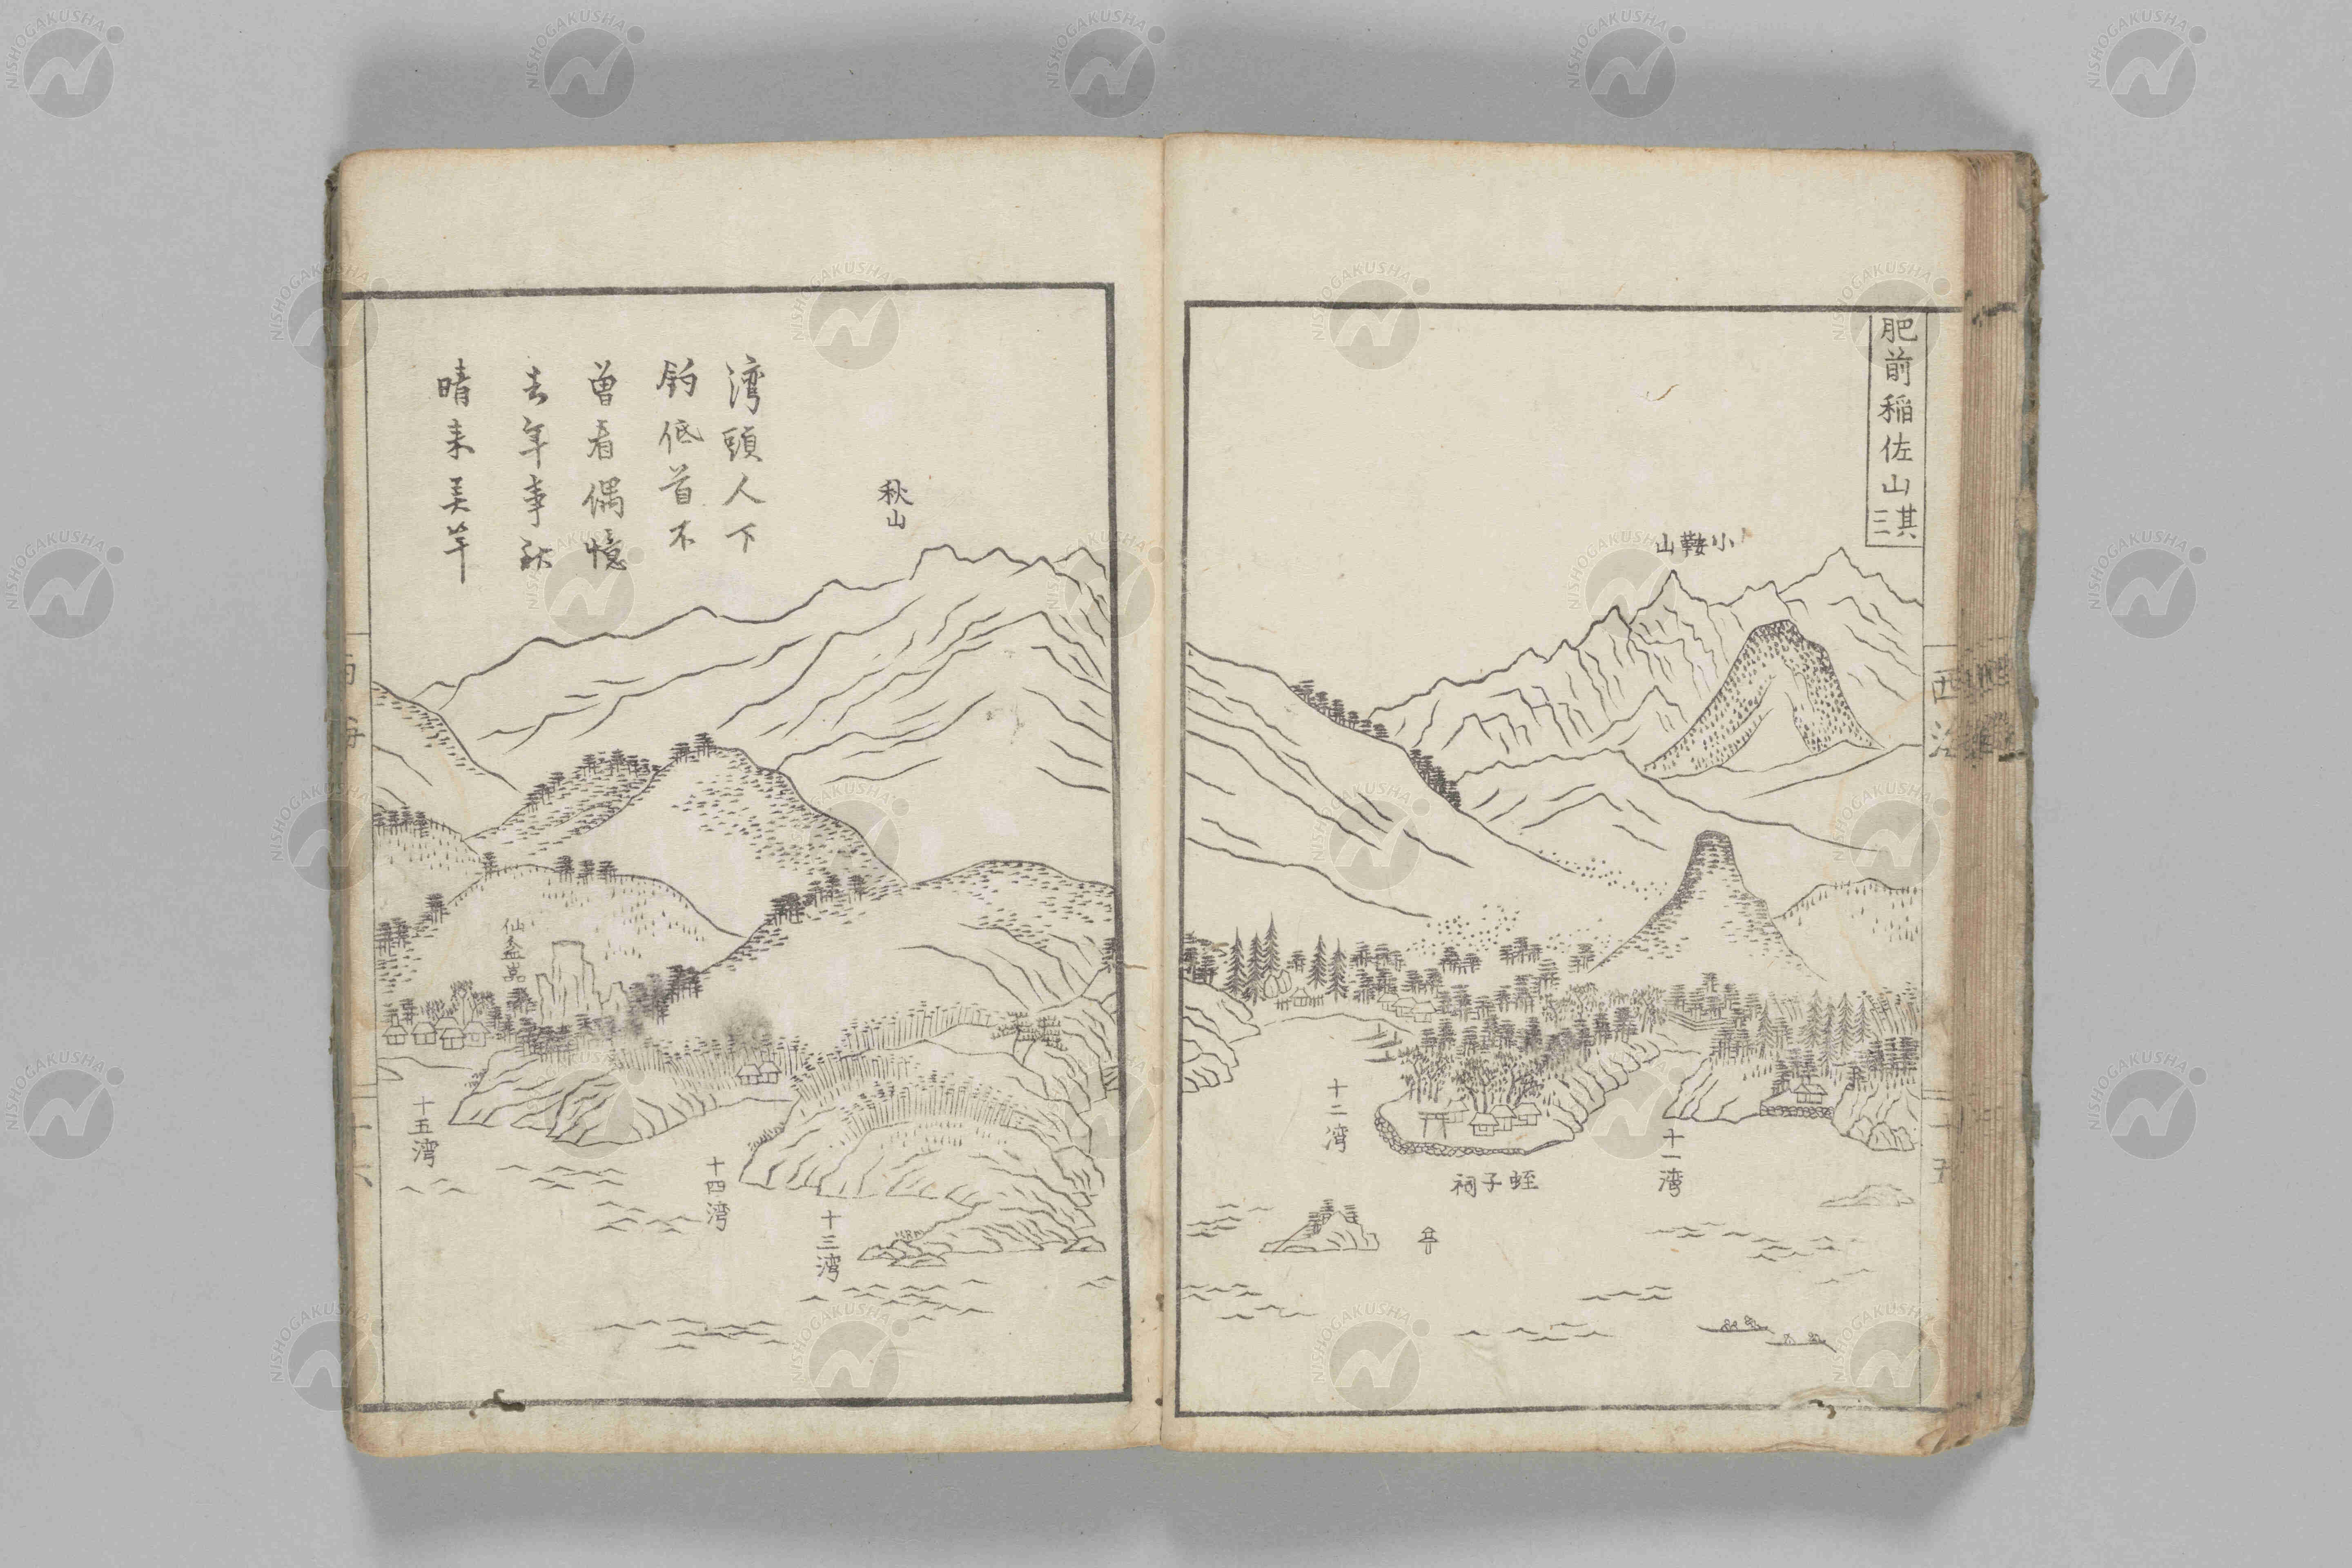 肥前稲佐山其三
小鞍山
十一湾
蛭子祠
十二湾
秋山
湾頭人下
釣低首不
曽看偶憶
去年事秋
晴来美竿
十三湾
十四湾
仙盃嵓
十五湾
西
十五
NISHOGAKUSHA